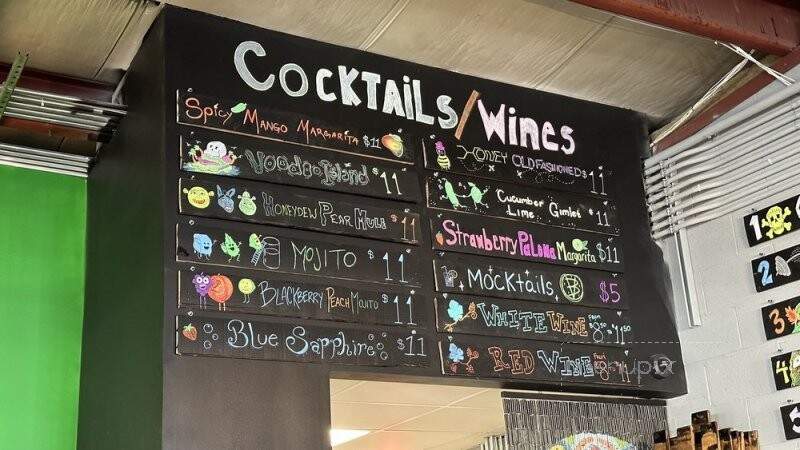 Cocktails/Wines
Spicy Mango Margarita $11
Voodoo Island $11
Honeydew Pear Mule $11
Mojito $11
Blackberry Peach Mojito $11
Blue Sapphire $11
Honey Old Fashioned $11
Cucumber
Lime Gimlet $11
Strawberry Paloma Margarita $11
Mocktails $5
White Wine from $8.50-$11.50
Red Wine from
1
2
3
4
5